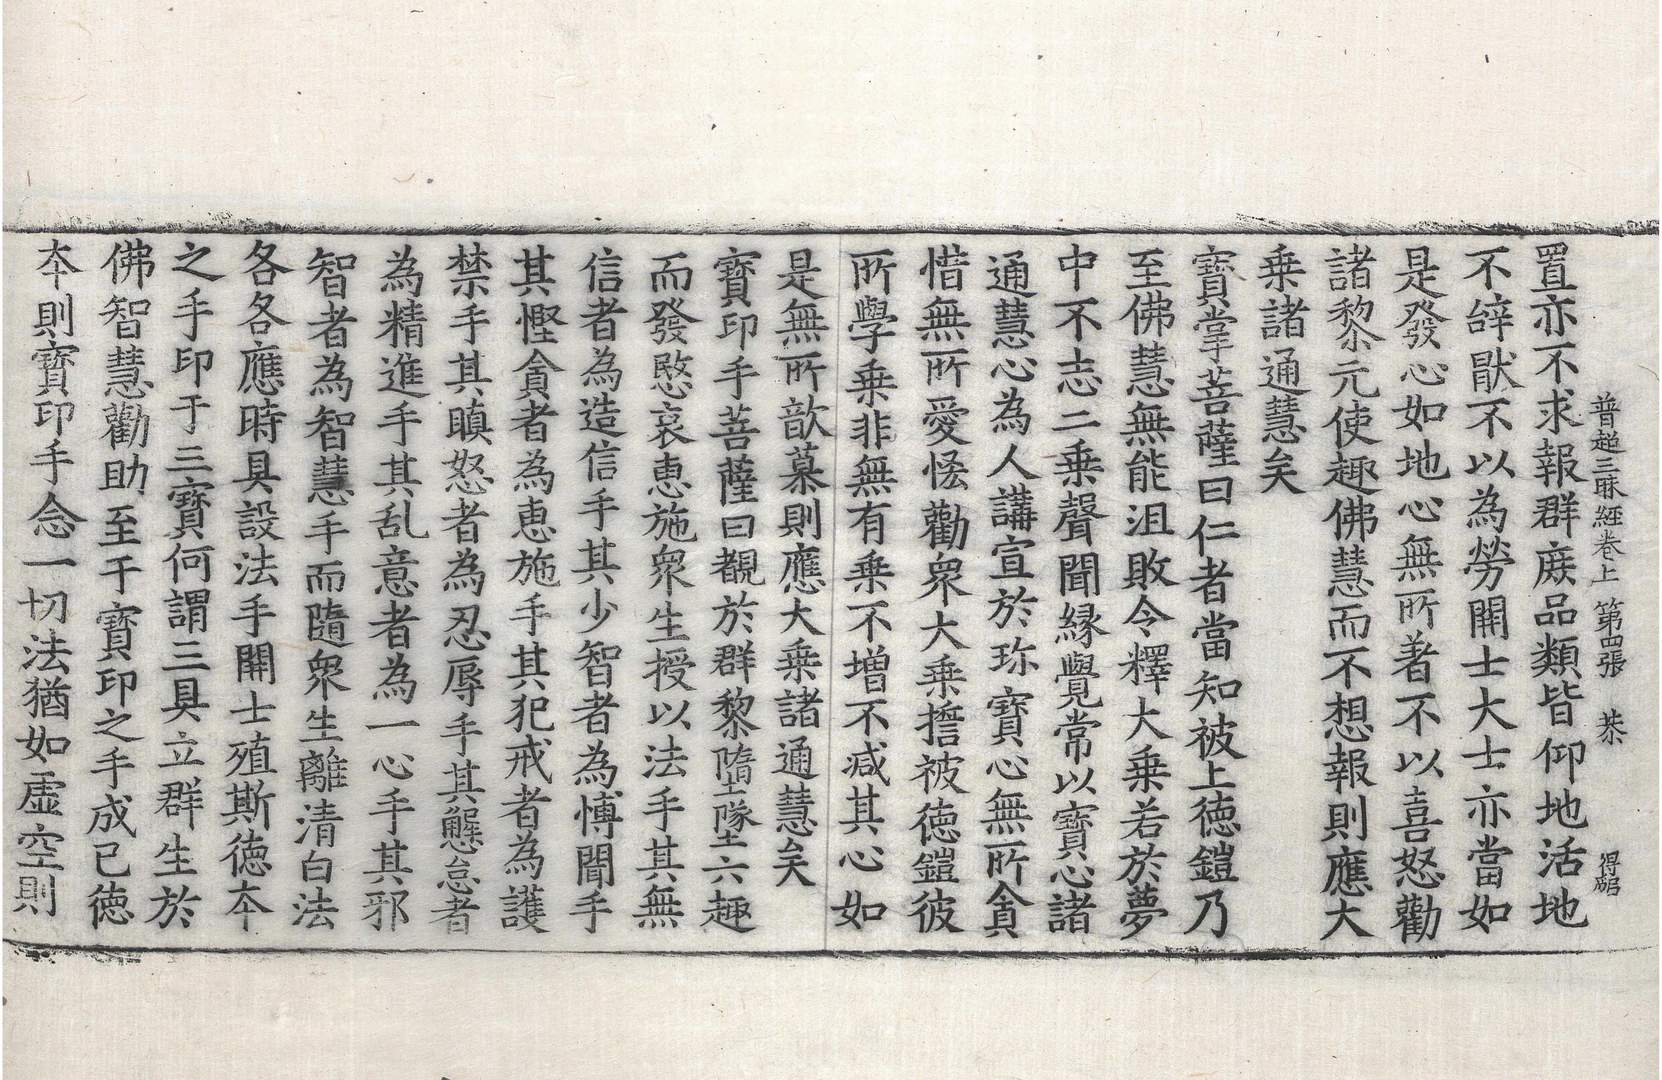 普超三昧經卷上 第四張 恭 得琚
置亦不求報群庶品類皆仰地活地
不辝猒不以為勞開士大士亦當如
是發心如地心無所著不以喜怒勸
諸黎元使趣佛慧而不想報則應大
乗諸通慧矣
寶掌菩薩曰仁者當知被上徳鎧乃
至佛慧無能沮敗令釋大乗若於夢
中不志二乗聲聞縁覺常以寶心諸
通慧心為人講宣於珎寶心無所貪
惜無所愛恡勸衆大乗擔被徳鎧彼
所學乗非無有乗不增不減其心如
是無所歆慕則應大乗諸通慧矣
寶印手菩薩曰覩於群黎墮墜六趣
而發愍哀恵施衆生授以法手其無
信者為造信手其少智者為博聞手
其慳貪者為恵施手其犯戒者為護
禁手其瞋怒者為忍辱手其懈怠者
為精進手其乱意者為一心手其邪
智者為智慧手而隨衆生離清白法
各各應時具設法手開士殖斯徳夲
之手印于三寶何謂三具立群生於
佛智慧勸助至于寶印之手成已徳
夲則寶印手念一切法猶如虛空則